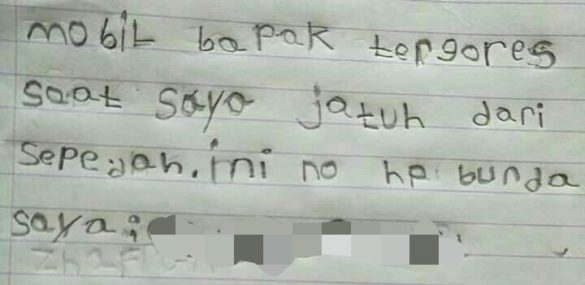 mobiL bapak tergores
saat saya jatuh dari
sepedah. ini no hp bunda
saya: